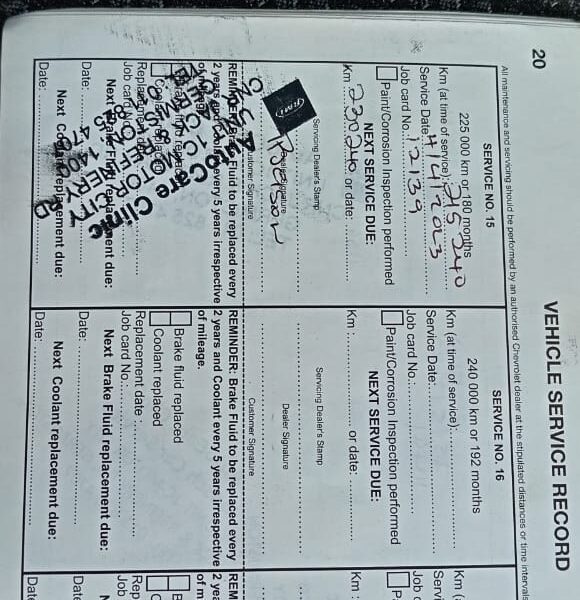 20
VEHICLE SERVICE RECORD
All maintenance and servicing should be performed by an authorised Chevrolet dealer at the stipulated distances or time intervals
SERVICE NO. 15
225 000 km or 180 months
Km (at time of service): 215 240
Service Date: 4/4/2023
Job card No.: 12139
Paint/Corrosion Inspection performed
NEXT SERVICE DUE:
Km: 230240 or date:
Servicing Dealer's Stamp
RMI
Dealer Signature
Customer Signature
REMINDER: Brake Fluid to be replaced every
2 years and Coolant every 5 years irrespective
of mileage.
Auto Care Clinic
CITY
RD
Replacement date
Job card No.:
Next Brake Fluid replacement due:
Date:
Next Coolant replacement due:
Date:
SERVICE NO. 16
240 000 km or 192 months
Km (at time of service):
Service Date:
Job card No.:
Paint/Corrosion Inspection performed
NEXT SERVICE DUE:
Km: or date:
Servicing Dealer's Stamp
Dealer Signature
Customer Signature
REMINDER: Brake Fluid to be replaced every
2 years and Coolant every 5 years irrespective
of mileage.
Brake fluid replaced
Coolant replaced
Replacement date :
Job card No.:
Next Brake Fluid replacement due:
Date:
Next Coolant replacement due:
Date:
Km (a
Servi
Job c
Pa
Km :
REM
2 yea
of m
B
C
Rep
Job
Date
Date